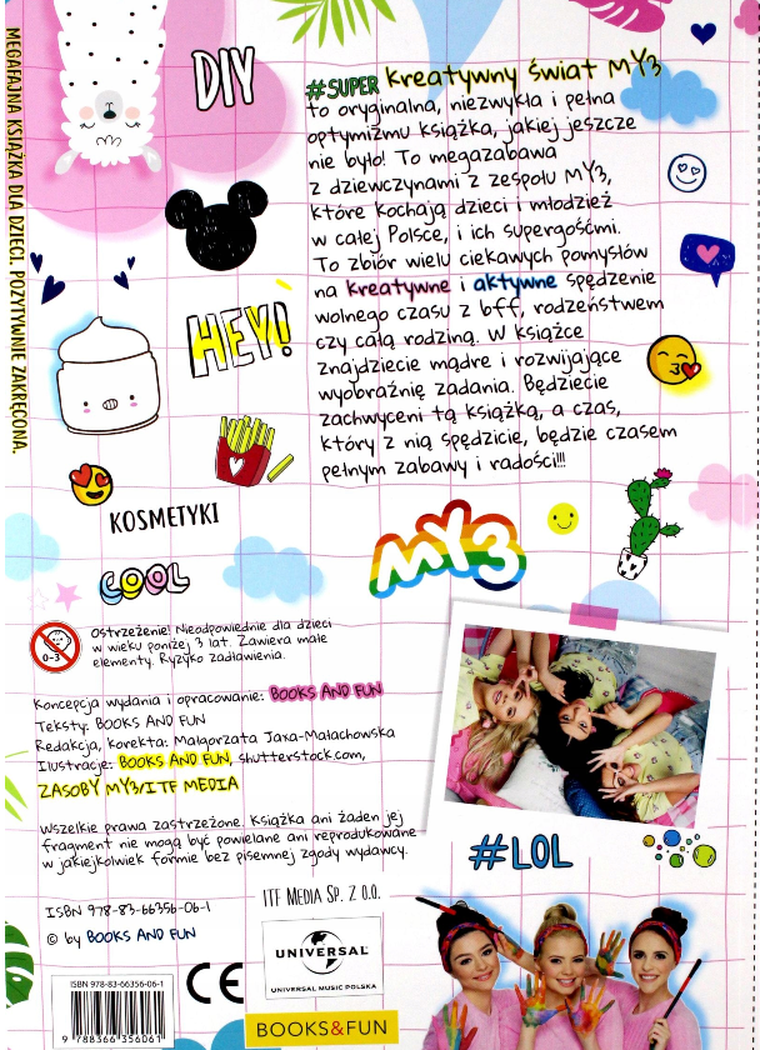 MEGAFAJNA KSIĄŻKA DLA DZIECI. POZYTYWNIE ZAKRĘCONA.
DIY
#SUPER kreatywny świat MY3
to oryginalna, niezwykła i pełna
optymizmu książka, jakiej jeszcze
nie było! To megazabawa
z dziewczynami z zespołu MY3,
które kochają dzieci i młodzież
w całej Polsce, i ich supergośćmi.
To zbiór wielu ciekawych pomysłów
na kreatywne i aktywne spędzenie
wolnego czasu z bff, rodzeństwem
czy całą rodziną. W książce
znajdziecie mądre i rozwijające
wyobraźnię zadania. Będziecie
zachwyceni tą książką, a czas,
który z nią spędzicie, będzie czasem
pełnym zabawy i radości!!!
HEY!
KOSMETYKI
COOL
MY3
0-3
Ostrzeżenie! Nieodpowiednie dla dzieci
w wieku poniżej 3 lat. Zawiera małe
elementy. Ryzyko zadławienia.
Koncepcja wydania i opracowanie: BOOKS AND FUN
Teksty: BOOKS AND FUN
Redakcja, korekta: Małgorzata Jaxa-Małachowska
Ilustracje: BOOKS AND FUN, shutterstock.com,
ZASOBY MY3/ITF MEDIA
Wszelkie prawa zastrzeżone. Książka ani żaden jej
fragment nie mogą być powielane ani reprodukowane
w jakiejkolwiek formie bez pisemnej zgody wydawcy.
#LOL
ISBN 978-83-66356-06-1
© by BOOKS AND FUN
ITF MEDIA SP. Z O.O.
UNIVERSAL
UNIVERSAL MUSIC POLSKA
ISBN 978-83-66356-06-1
9 788366 356061
CE
BOOKS&FUN